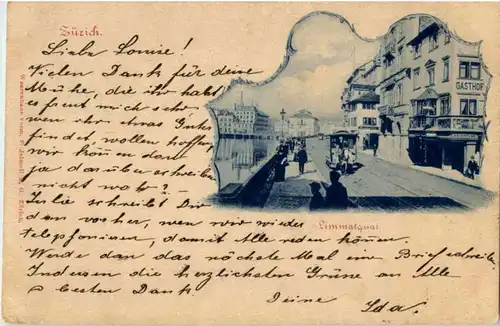 Zürich.
Liebe Louise!
Vielen Dank für deine
Mühe, die ihr habt
es freut mich sehr
wen ihr etwas Gutes
findet, wollen hoffen
wir können dann
ja darüber schreiben
nicht wahr?
Julie schreibt Dir
dan vorher, wen wir wieder
telephonieren, damit Alle reden können.
Werde dan das nächste Mal eine Brief schreiben
Indessen die herzlichsten Grüsse an Alle
& besten Dank.
Deine Ida.
GASTHOF
Limmatquai